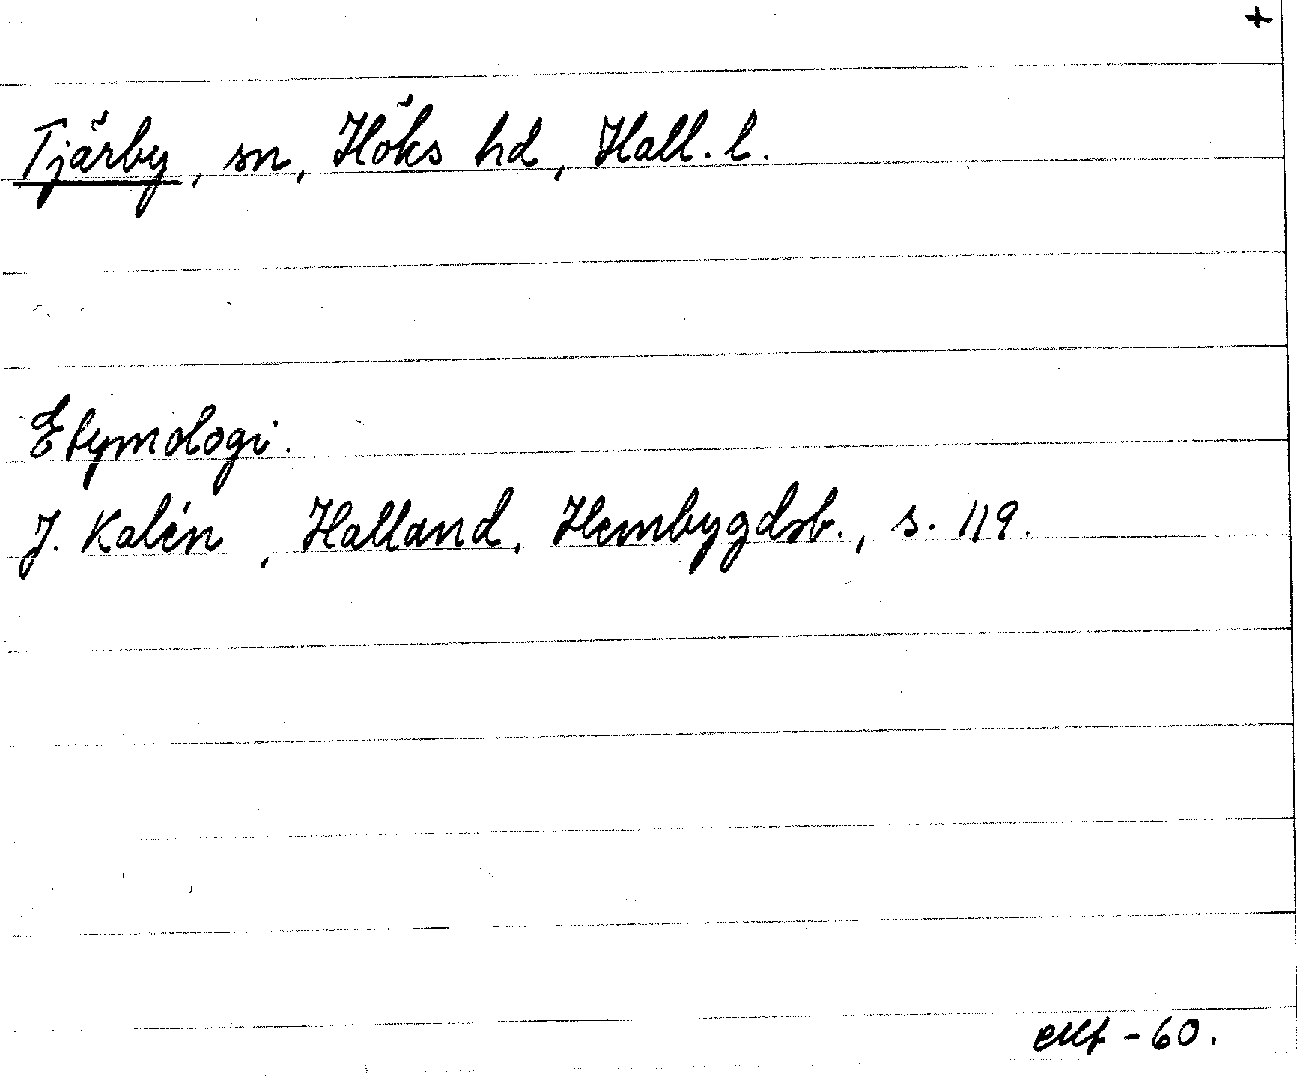 +
Tjärby, sn, Höks hd, Hall. l.
Etymologi.
J. Kalén, Halland, Hembygdsb., s. 119.
-60.